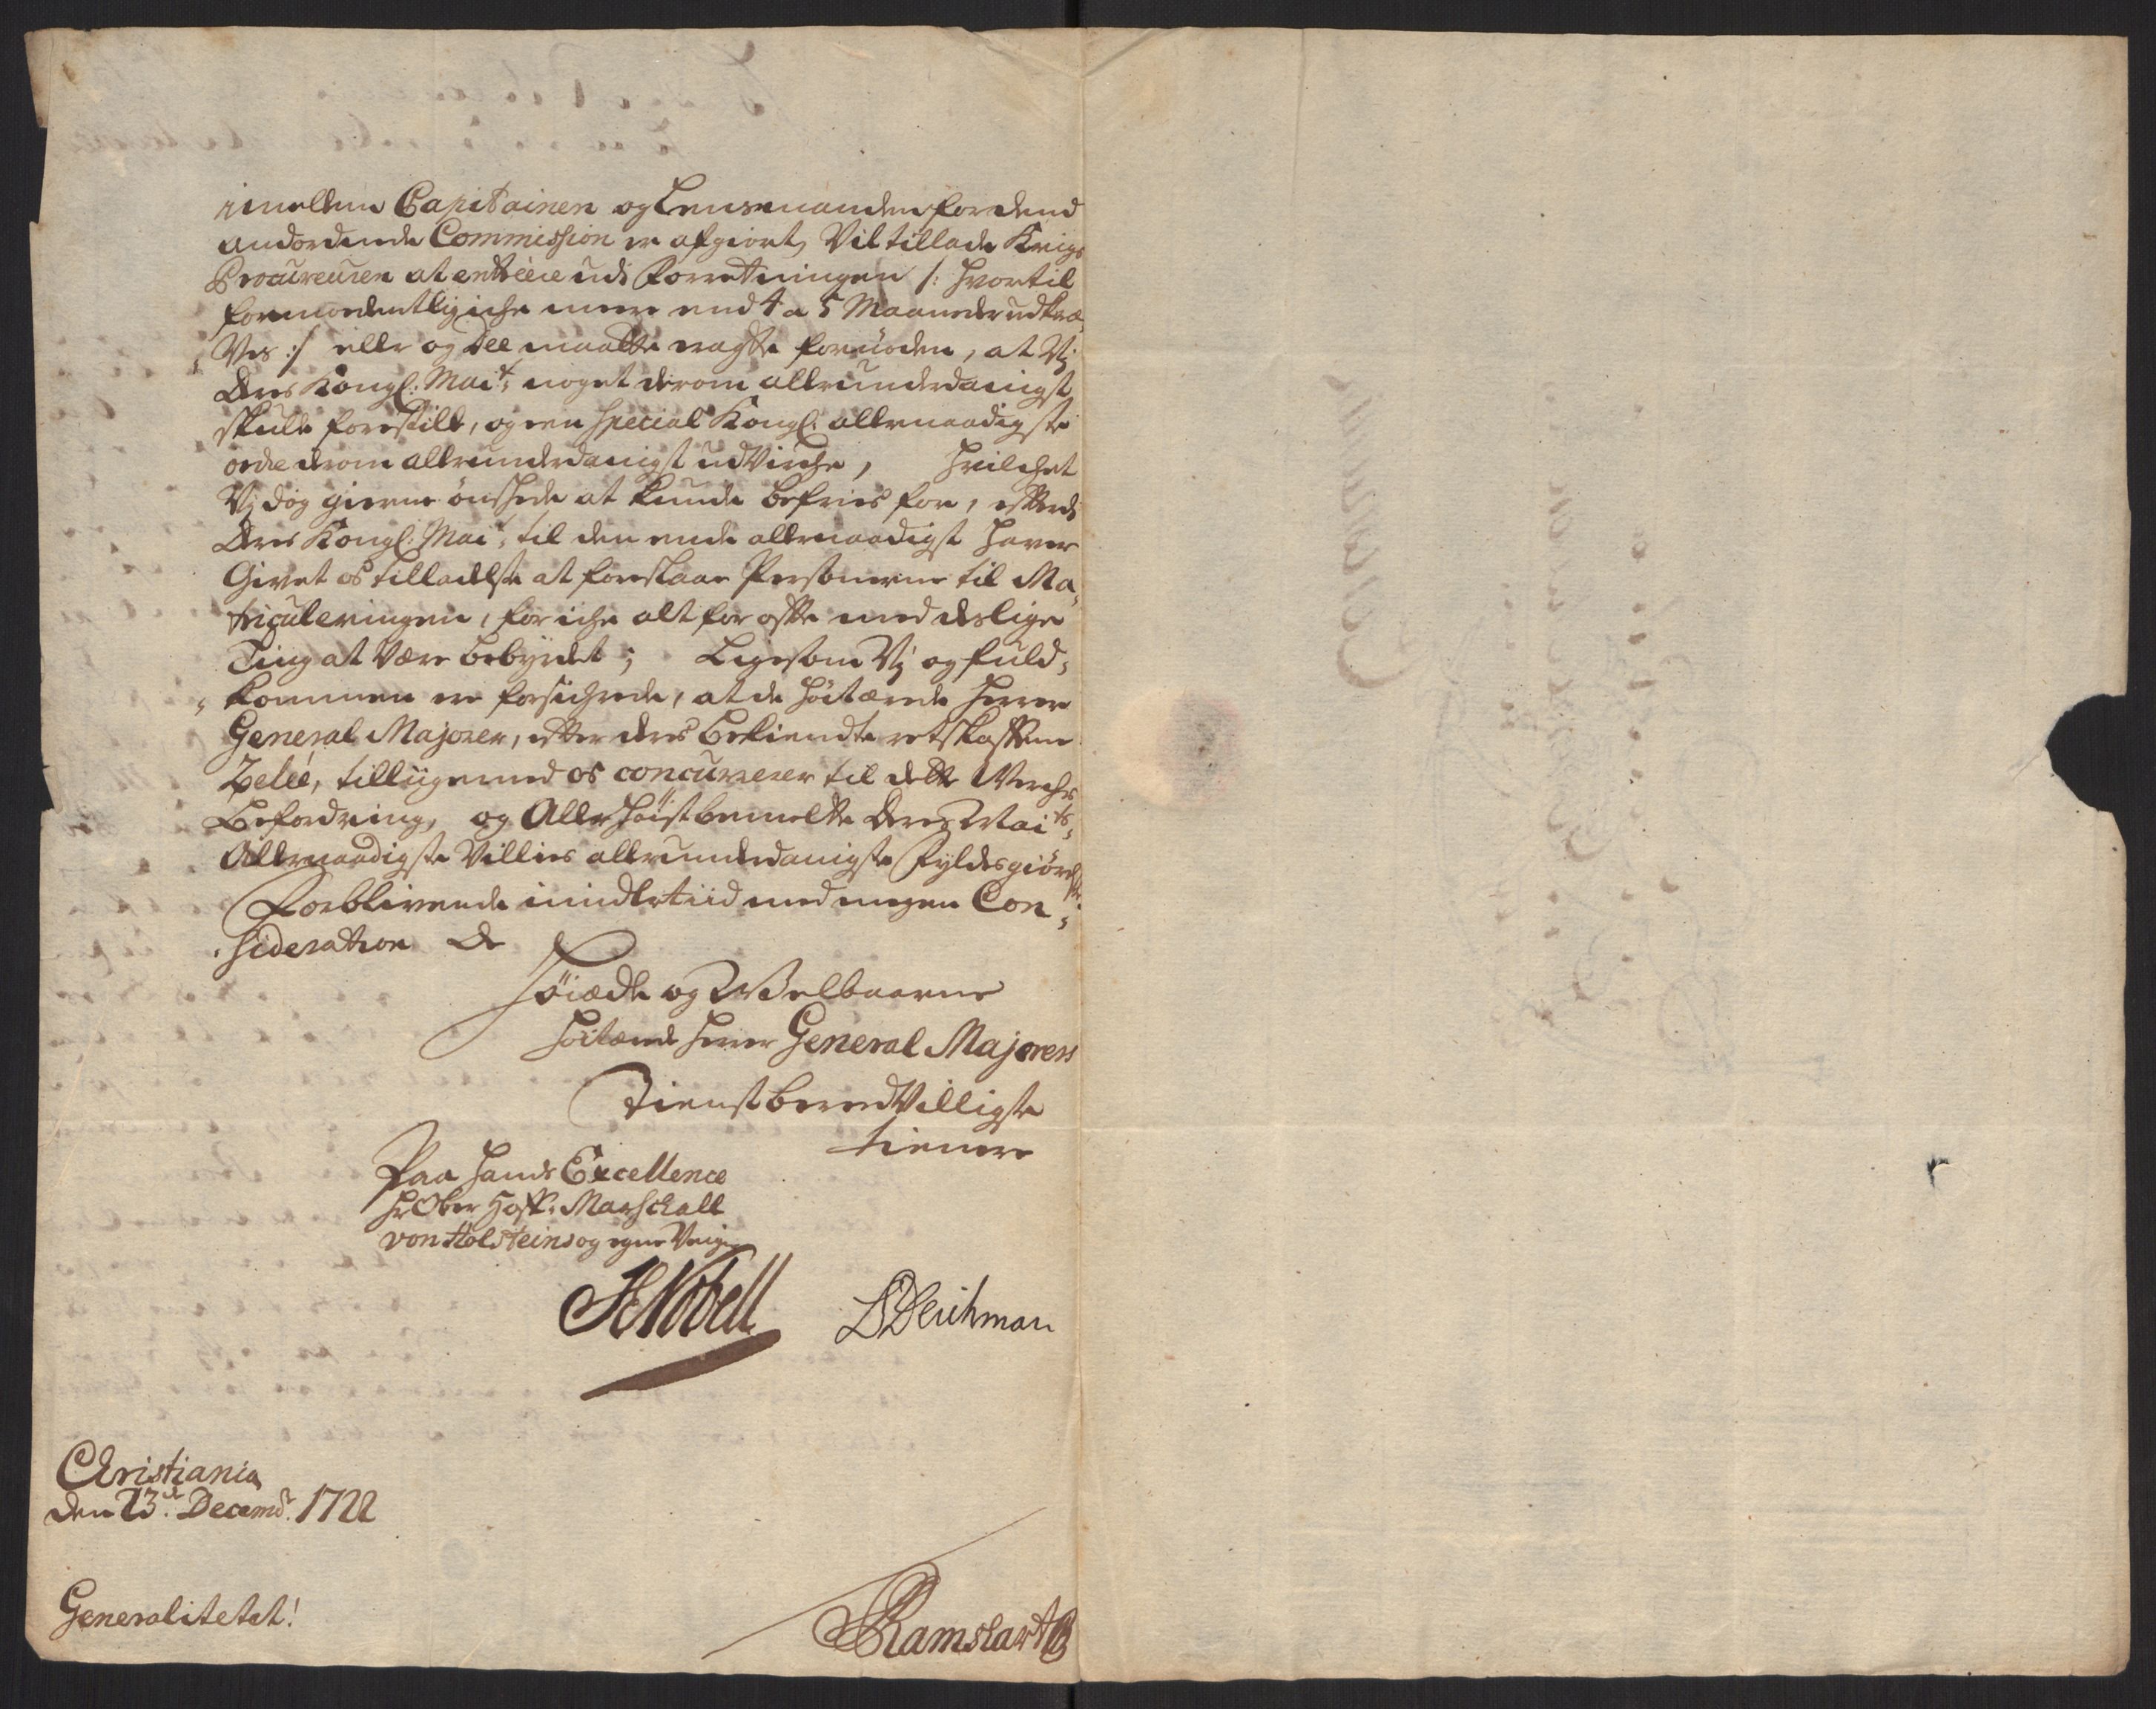 imellem Capitainen og Lensmanden for dend
andordnede Commission er afgiort, Vil tillade Krigs
Procureuren at entrére udi Forretningen /: hvortil
formodentlig iche mere end 4 a 5 Maaneder udkræ¬
Ves :/ eller og Dee maatte eragte fornøden, at Vj
Deres Kongl: Mait: noget derom allerunderdanigst
skulle forestille, og een special Kongl: allernaadigste
ordre derom allerunderdanigst udVirche, hvilchet
Vj dog gierne ønschede at kunde befries for, efterdi
Deres Kongl: Mait: til den ende allernaadigst haver
Givet os tilladelse at foreslaae Personerne til Ma¬
triculeringen, for iche alt for ofte med deslige
Ting at være bebyrdet; Ligesom Vj og fuld¬
kommen er forsichrede, at de høitærede Herrer
General Majorer, efter deres bekiendte retskafne
Zelée, tilligemed os concurrerer til dette Werchs
Befordring, og Allerhøistbemelte Deres Maits:
Allernaadigste Villies allerunderdanigste Fyldestgiørelse
Forblivende imidlertiid med megen Con¬
sideration De
Høiædle og Welbaarne
Høitærede Herrer General Majorers
Tienstberedvilligste
tienere
Paa Hands Excellence
Hr Ober Hoff: Marschall
von Holsteins og egne Veigne
HNobell DDeichman
Christiania
den 23de Decembr: 1722
Generalitetet!
Ramshart